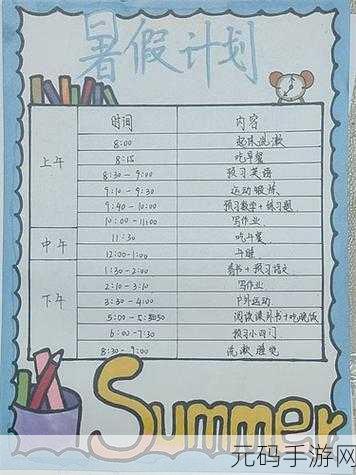 暑假计划
时间 内容
上午
8:00 起床洗漱
8:15 吃早餐
8:30-9:00 预习英语
9:10-9:30 运动锻炼
9:40-10:00 预习数学+练习题
10:00-11:00 写作业
中午
11:30 吃午餐
12:00-1:00 午睡
下午
1:30-2:00 看书+预习语文
2:10-3:10 写作业
3:30-4:00 户外运动
5:00-5:30 阅读课外书+吃晚饭
6:00-7:30 预习小四门
8:30-9:00 洗漱睡觉
Summer
元码手游网